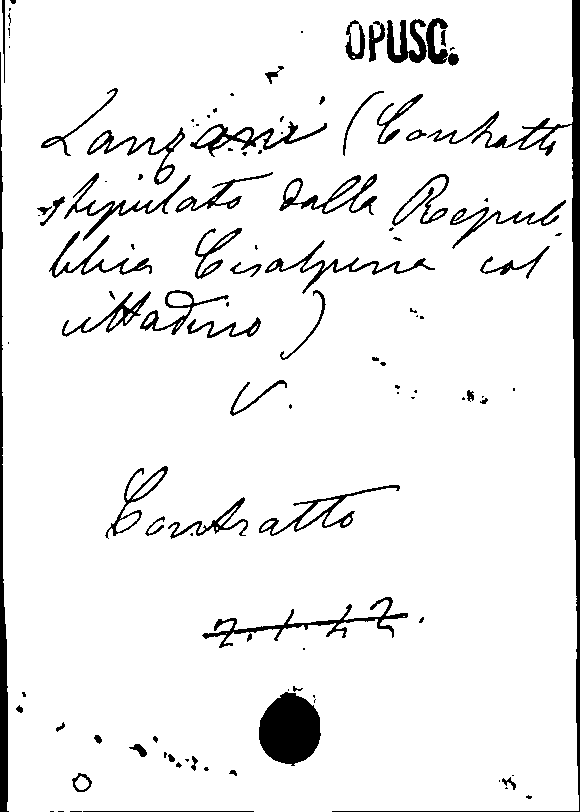 OPUSC.
Lanzani (Contratto
stipulato dalla Repub-
blica Cisalpina col
cittadino)
V.
Contratto